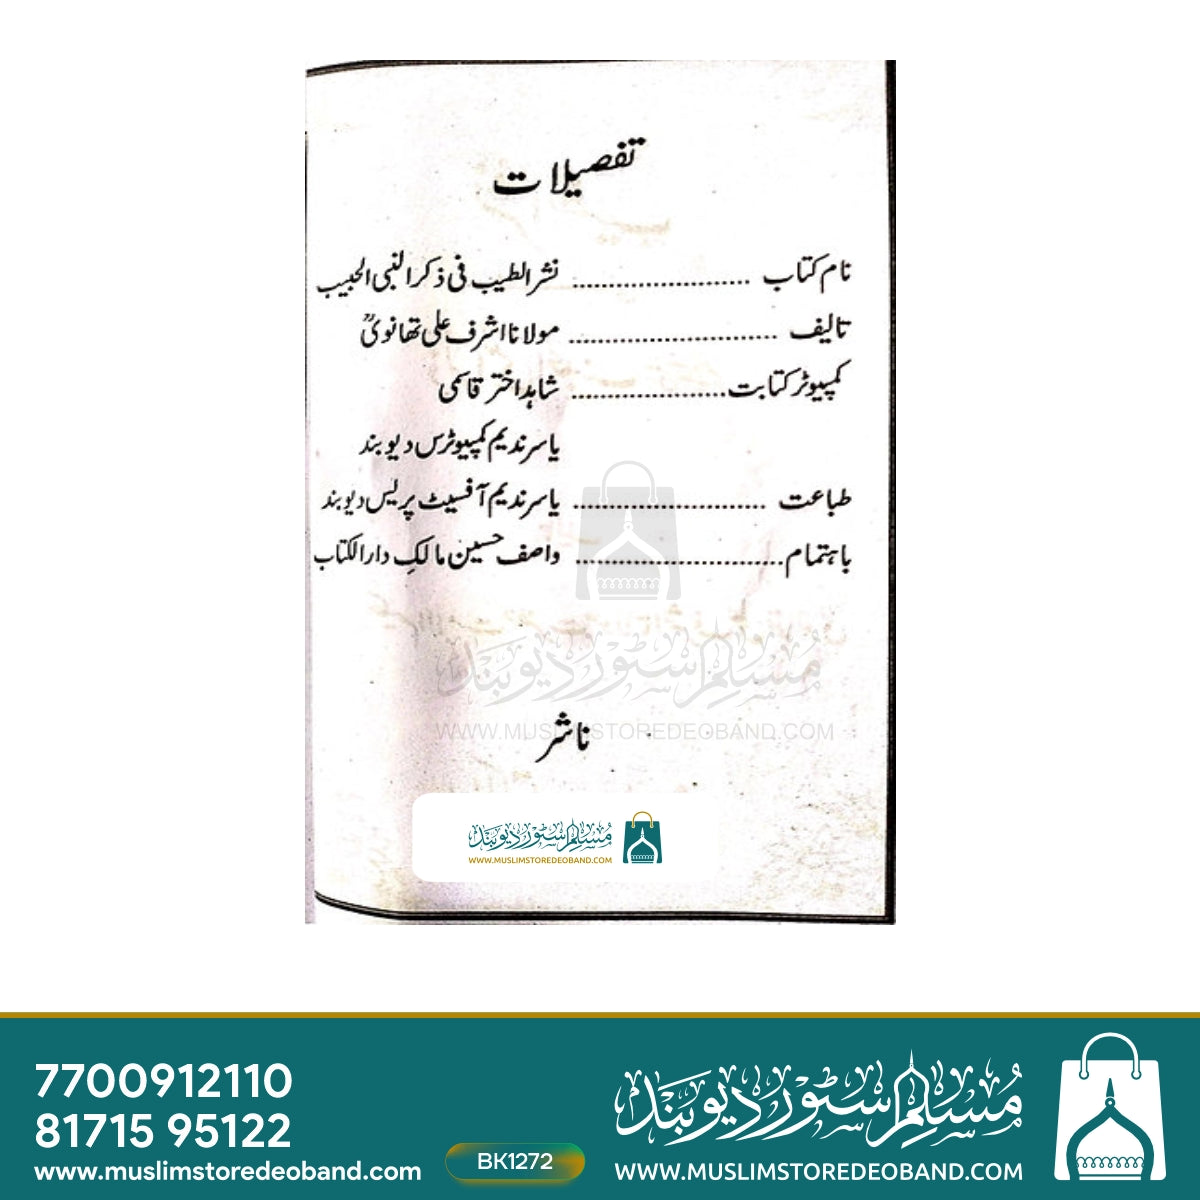 تفصیلات
نام کتاب ........................ نشر الطیب فی ذکر النبی الحبیب
تالیف ........................ مولانا اشرف علی تھانویؒ
کمپیوٹر کتابت..................... شاہد اختر قاسمی
یاسر ندیم کمپیوٹرس دیوبند
طباعت ........................ یاسر ندیم آفسیٹ پریس دیوبند
باہتمام........................ واصف حسین مالکِ دار الکتاب
مسلم سٹور دیوبند
WWW.MUSLIMSTOREDEOBAND.COM
ناشر
مسلم سٹور دیوبند
WWW.MUSLIMSTOREDEOBAND.COM
7700912110
81715 95122
www.muslimstoredeoband.com
BK1272
مسلم سٹور دیوبند
WWW.MUSLIMSTOREDEOBAND.COM